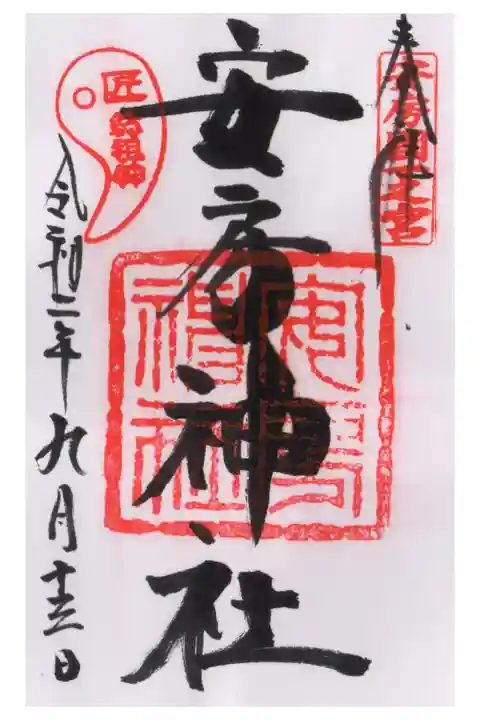 奉拝
安房国一之宮
安房神社
安房神社
匠総祖神
令和二年九月十三日